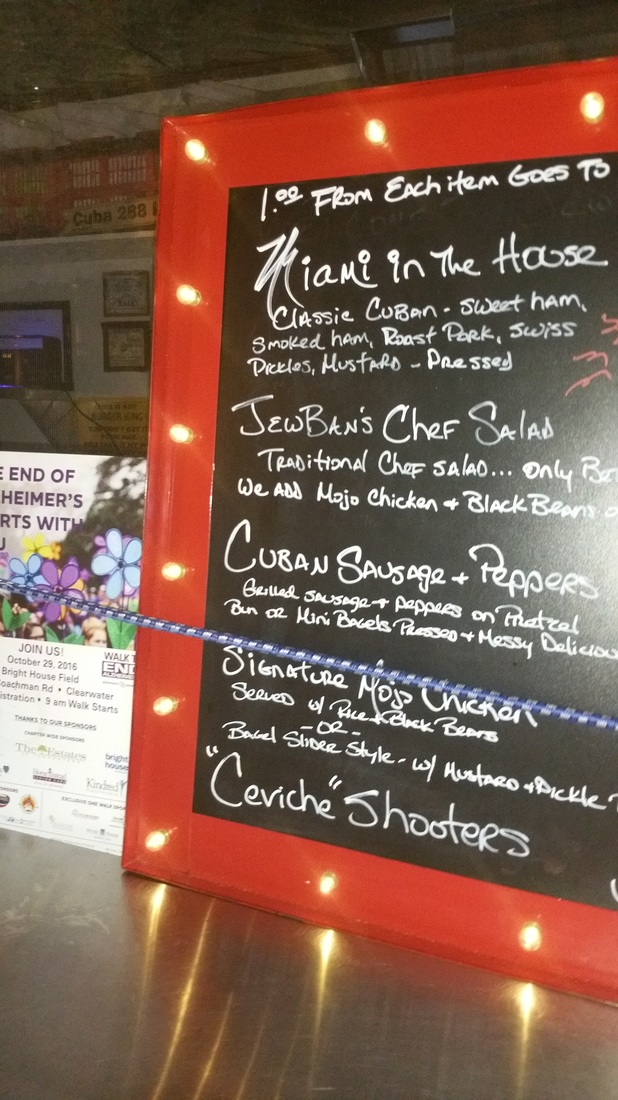 1.00 From Each item Goes To
Miami in The House
Classic Cuban - sweet ham,
smoked ham, Roast Pork, swiss
Pickles, Mustard - Pressed
JewBan's Chef Salad
Traditional Chef salad... only
we add Mojo Chicken + Black Beans
Cuban Sausage + Peppers
Grilled sausage + peppers on Pretzel
Bun or Mini Bagels Pressed + Messy Deliciou
Signature Mojo Chicken
Served w/ Rice + Black Beans
- OR -
Bagel Slider Style - w/ Mustard + Pickle
"Ceviche" Shooters
Cuba 288
E END OF
HEIMER'S
RTS WITH
U
JOIN US!
October 29, 2016
Bright House Field
oachman Rd • Clearwater
istration • 9 am Walk Starts
WALK T
END
THANKS TO OUR SPONSORS
CHAPTER WIDE SPONSORS
The Estates
bright
house
Kindred
EXCLUSIVE ONE WALK SPO